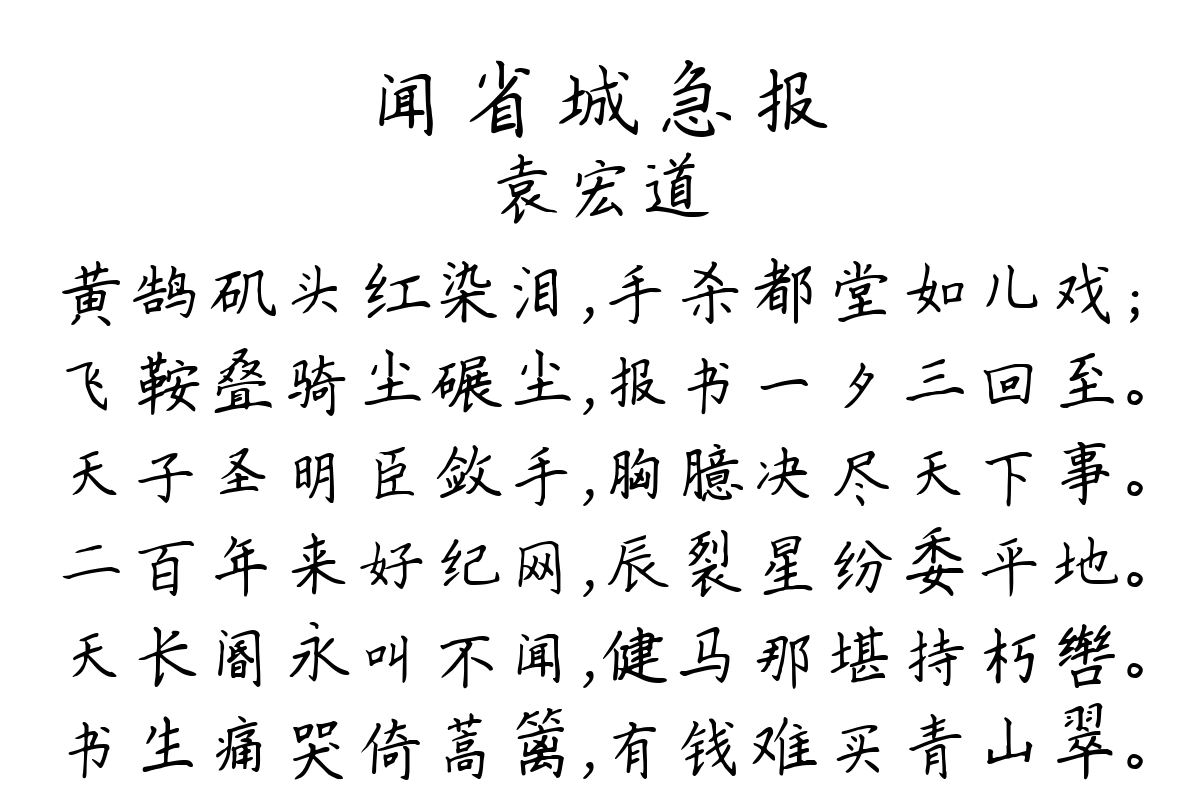 闻省城急报
袁宏道
黄鹄矶头红染泪,手杀都堂如儿戏;
飞鞍叠骑尘碾尘,报书一夕三回至。
天子圣明臣敛手,胸臆决尽天下事。
二百年来好纪网,辰裂星纷委平地。
天长阍永叫不闻,健马那堪持朽辔。
书生痛哭倚蒿篱,有钱难买青山翠。